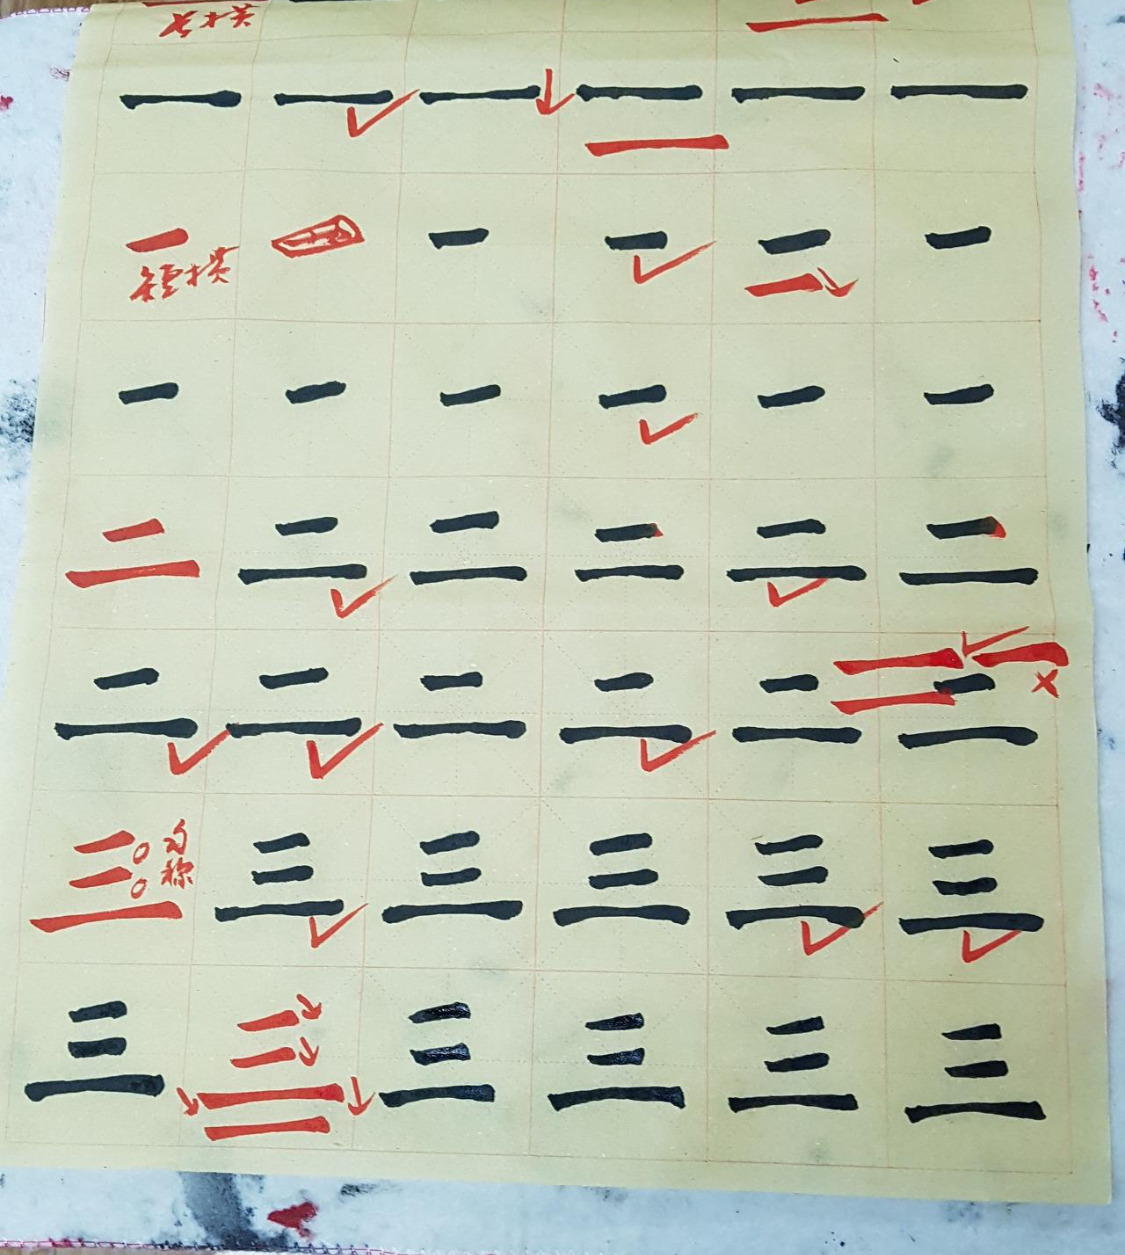 长横
一 一 一 一 一 一
一 一 一 一 二 一
短横
一 一 一 一 一 一
二 二 二 二 二 二
二 二 二 二 二 二
三 三 三 三 三 三
匀称
三 三 三 三 三 三